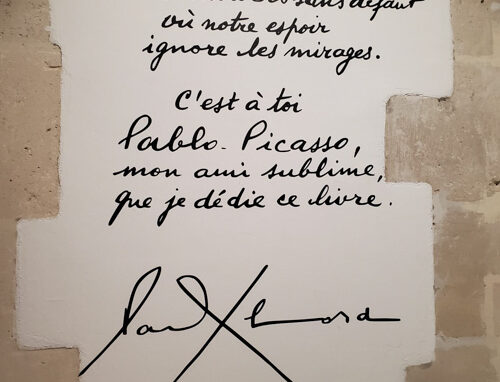 sans défaut
où notre espoir
ignore les mirages.
C'est à toi
Pablo-Picasso,
mon ami sublime,
que je dédie ce livre.
Paul Eluard